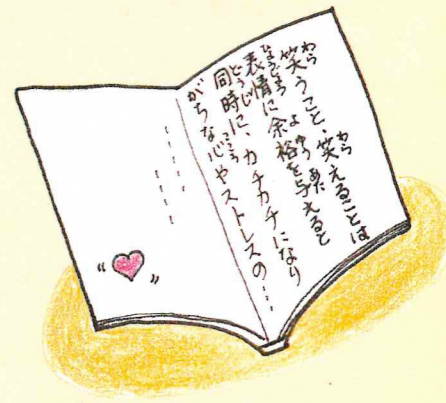 笑うこと、笑えることは
表情に余裕を与えると
同時に、カチカチになり
がちな心やストレスの…